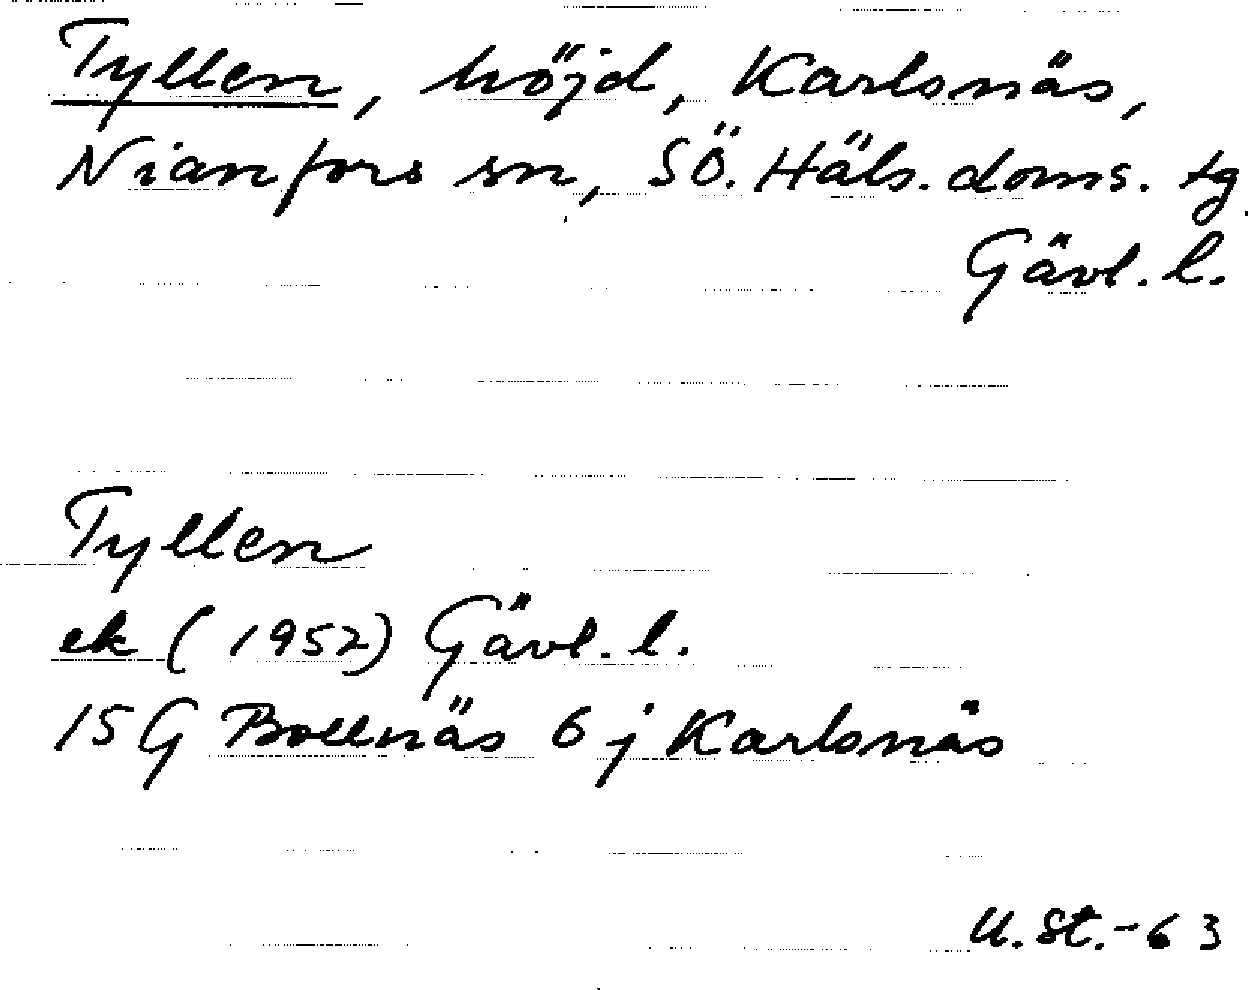 Tyllen, höjd, Karlsnäs,
Nianfors sn, SÖ. Häls. doms. tg
Gävl. l.
Tyllen
ek (1952) Gävl. l.
15 G Bollnäs 6 j Karlsnäs
U. St. -63